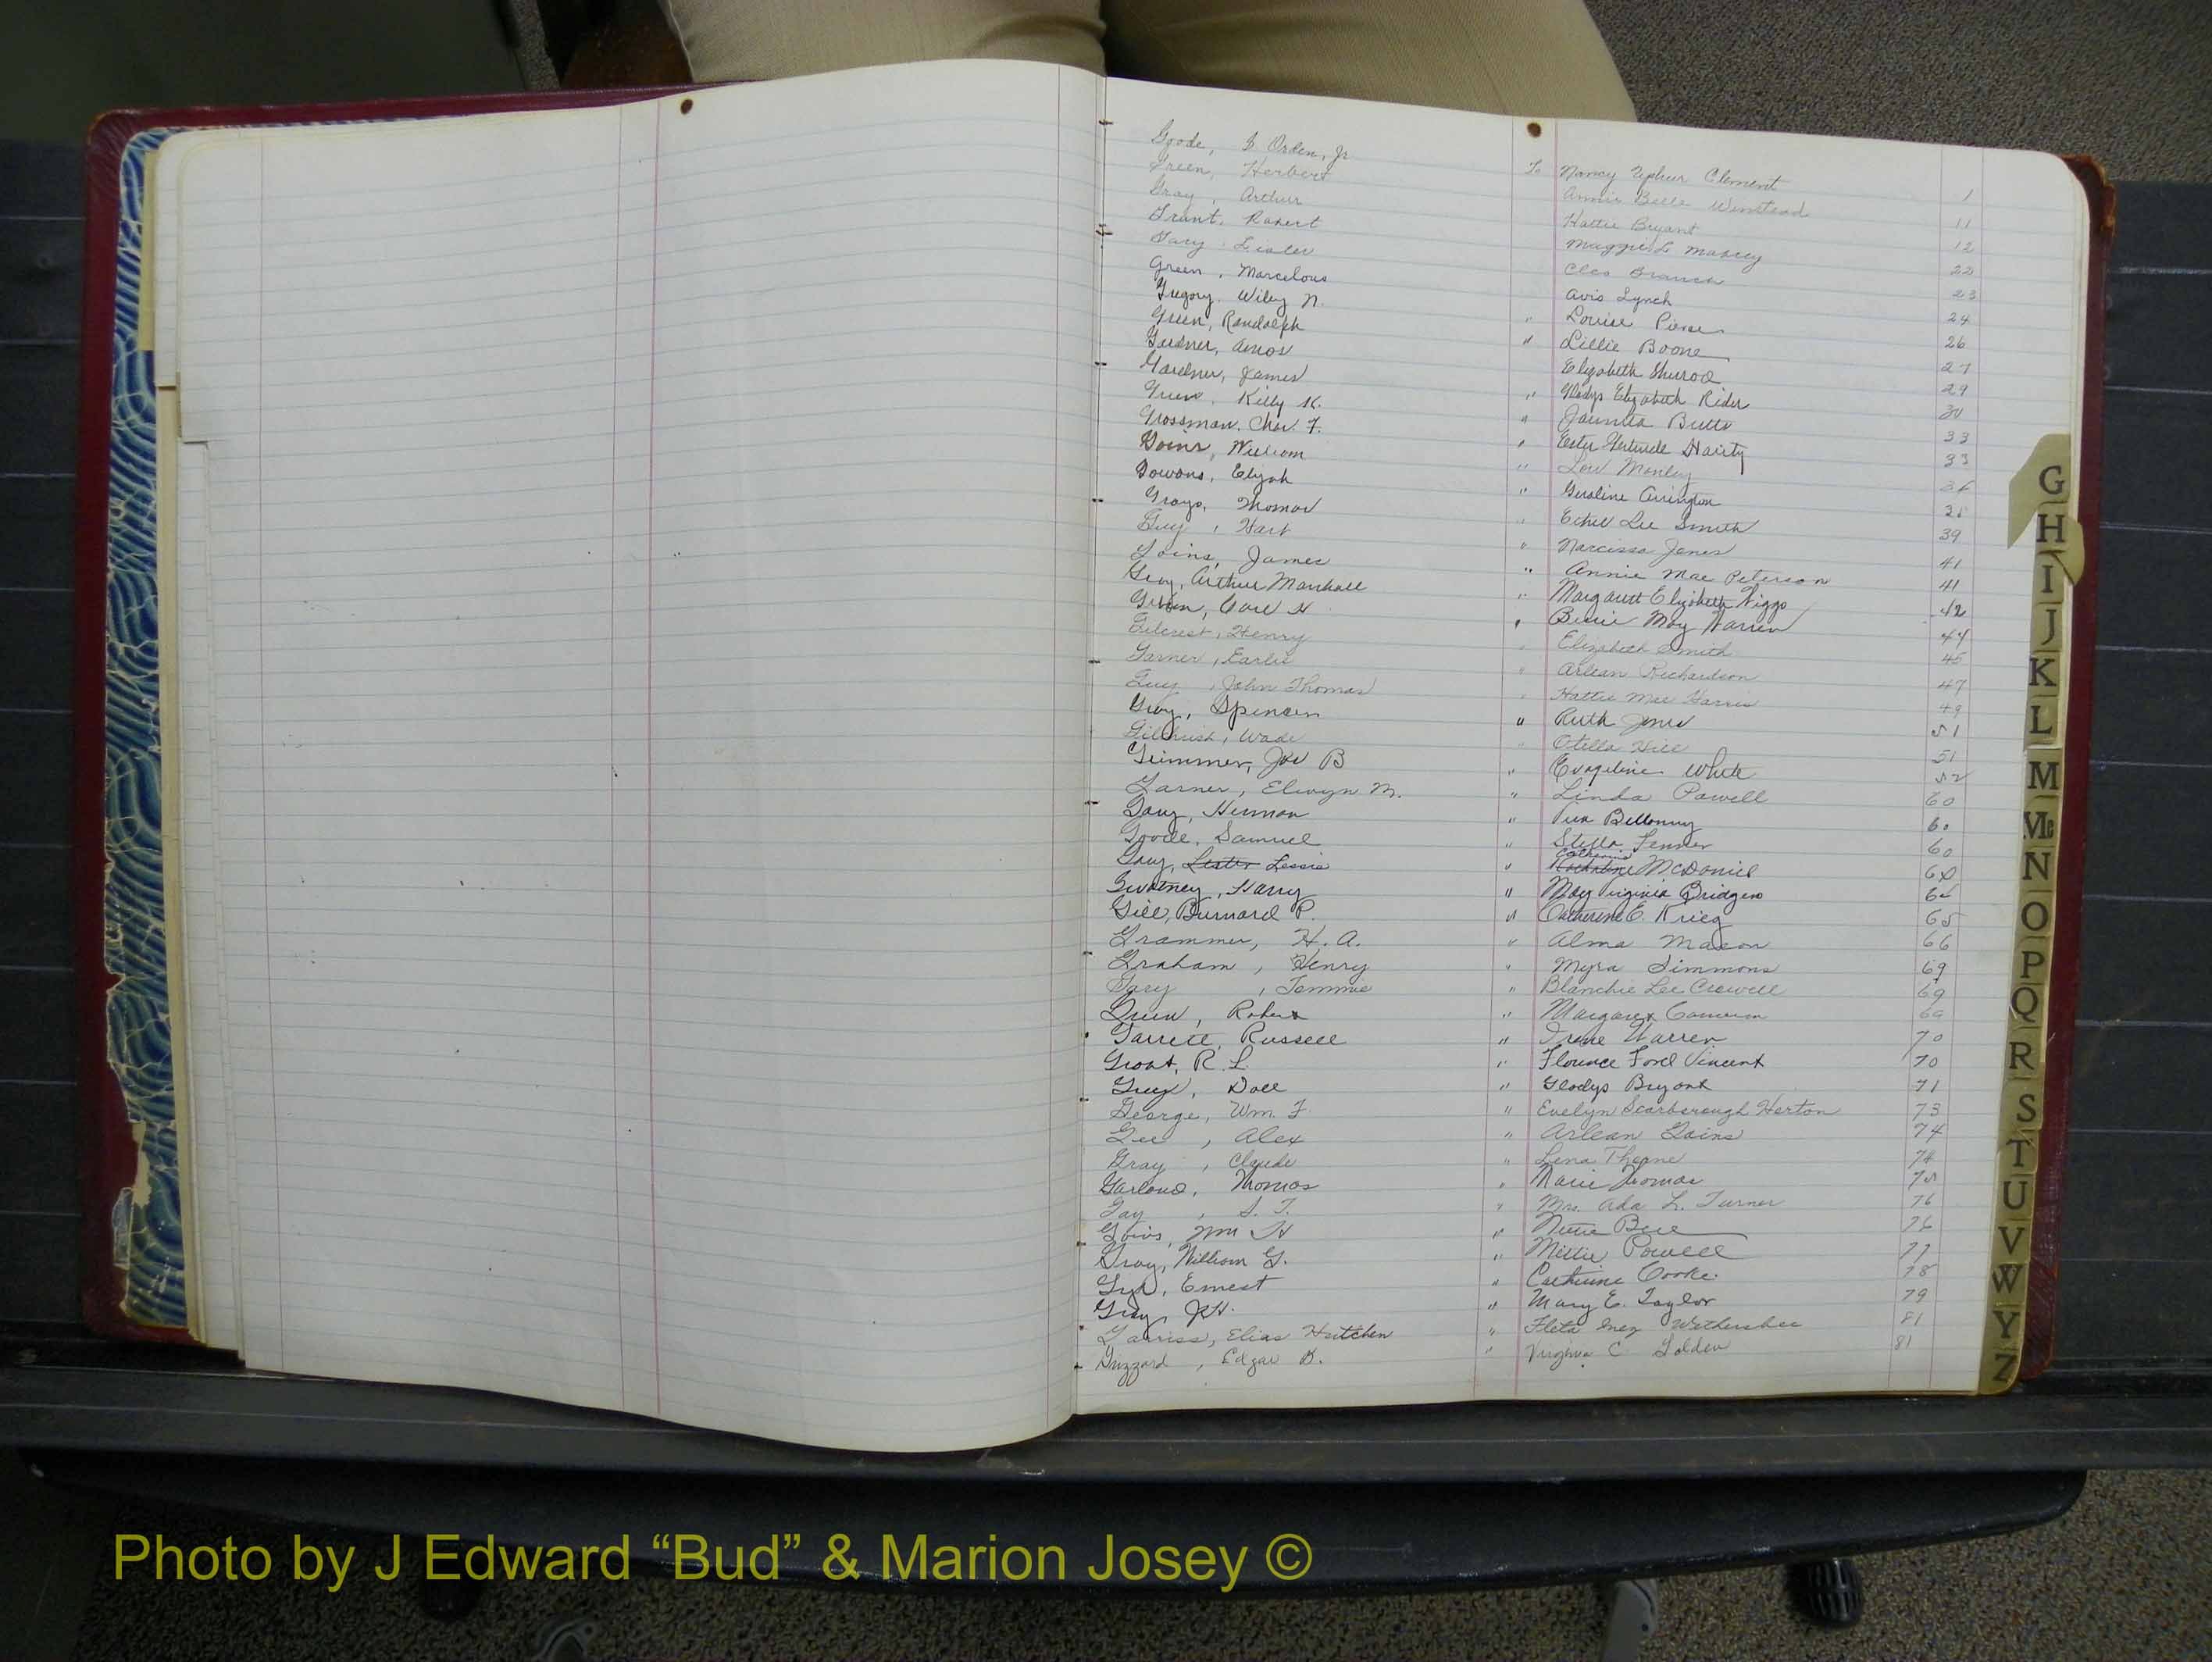 Goode, G. Orden, Jr To Nancy Clement 1
Green, Herbert Annie Belle Winstead 11
Gray, Arthur Hattie Bryant 12
Grant, Robert Maggie L Massey 22
Gary, Lister Cleo Branch 23
Green, Marcelous Avis Lynch 24
Gregory, Wiley N. " Louise Pierce 26
Green, Randolph " Lillie Boone 27
Gardner, Amos Elizabeth Sherrod 29
Gardner, James " Gladys Elizabeth Rider 30
Green, Kelly K. " Juanita Butts 33
Grossman, Chas. F. " Ester Gertrude Hairty 33
Goins, William " Low Manley
Gowans, Elijah " Geraline Arrington
Grays, Thomas " Ethel Lee Smith 39
Guy, Hart " Narcissa Jones 41
Goins, James " Annie Mae Peterson 41
Gray, Arthur Marshall " Margarett Elizabeth Riggs 42
Carl H " Bessie May Warren 44
Gilcrest, Henry " Elizabeth Smith 45
Garner, Earlie " Arlean Richardson 47
Guy, John Thomas " Hattie Mae Harris 49
Gray, Spencer " Ruth Jones 51
Gilchrist, Wade " Otella Hill 51
Grimmer, Joe B " Evageline White 52
Garner, Elwyn M. " Linda Powell 60
Gary, Herman " Bellamy 60
Goode, Samuel " Stella Fenner 60
Gary, Lester Lessie " Katherine Catherine McDaniel 60
Gwatney, Harry " May Virginia Bridgers
Gill, Burnard P. " Catherine E. Krieg 65
Grammer, H. A. " Alma Mason 66
Graham, Henry " Myra Simmons 69
Gary, Tommie " Blanchie Lee Crowell 69
Green, Robert " Margaret Cameron 69
Garrett, Russell " Irene Warren 70
Grant, R. L. " Florence Ford Vincent 70
Guy, Doll " Gladys Bryant 71
George, Wm. F. " Evelyn Scarborough Horton 73
Gee, Alex " Arlean Goins 74
Gray, Claude " Lena Thorne 74
Garland, Thomas " Marie Thomas 75
Gay, S. T. " Mrs. Ada L. Turner 76
Goins, Wm H " 76
Gray, William G. " Mittie Powell 77
Ernest " Catherine Cooke 78
Gray, J.H. " Mary E. Taylor 79
Garriss, Elias Hutchen " Fleta Inez Wethersbee 81
Grizzard, Edgar B. " Virginia C. Golden 81
G
H
I
J
K
L
M
Mc
N
O
P
Q
R
S
T
U
V
W
Y
Z
Photo by J Edward “Bud” & Marion Josey ©